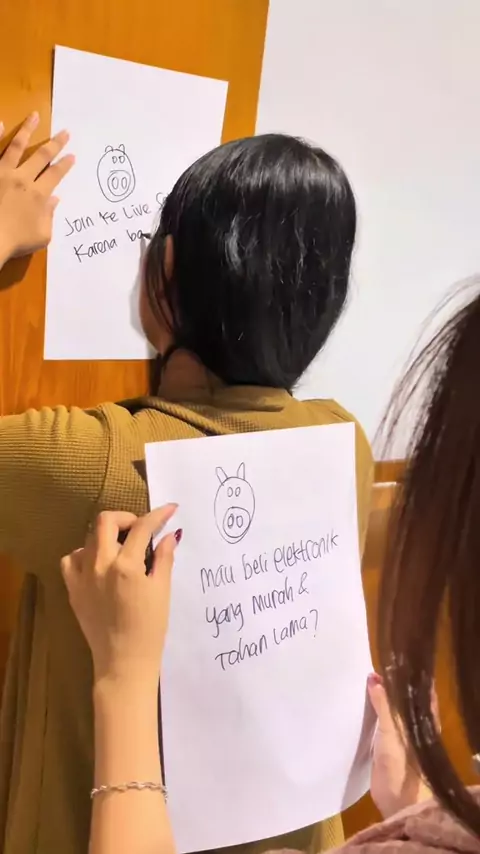 Join Ke Live
Karena
mau beli elektronik
yang murah &
Tahan Lama?